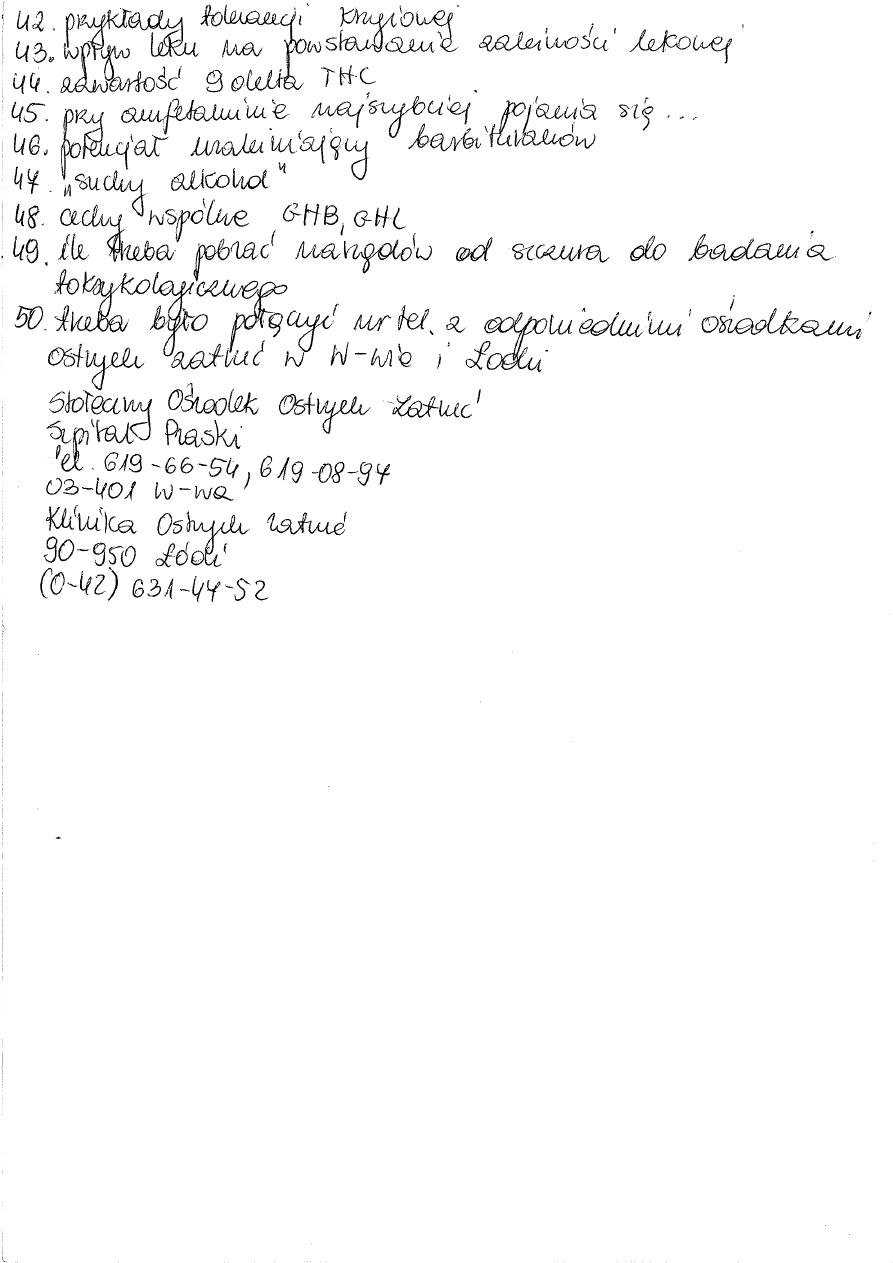 42. przykłady tolerancji krzyżowej
43. wpływ leku na powstawanie zależności lekowej
44. zawartość 9 delta THC
45. przy amfetaminie najszybciej pojawia się...
46. potencjał uzależniający barbituranów
47. „suchy alkohol"
48. cechy wspólne GHB, GHL
49. ile trzeba pobrać narządów od szczura do badania
toksykologicznego
50. trzeba było połączyć nr tel. z odpowiednimi ośrodkami
Ostrych zatruć w W-wie i Łodzi
Stołeczny Ośrodek Ostrych Zatruć
Szpital Praski
tel. 619-66-54, 619-08-94
03-401 W-wa
Klinika Ostrych Zatruć
90-950 Łódź
(0-42) 631-44-52